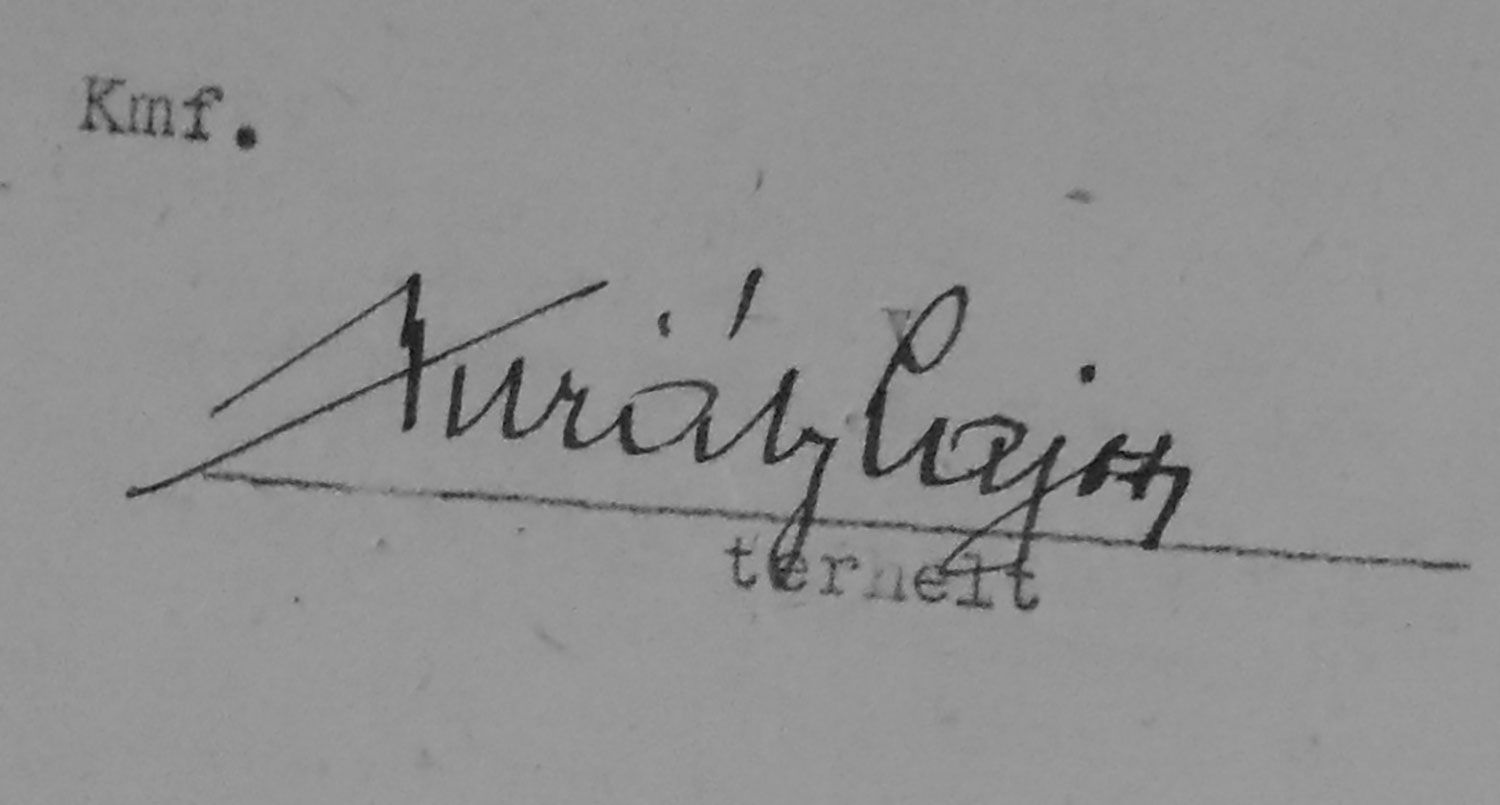 Kmf.
Király Lajos
terhelt